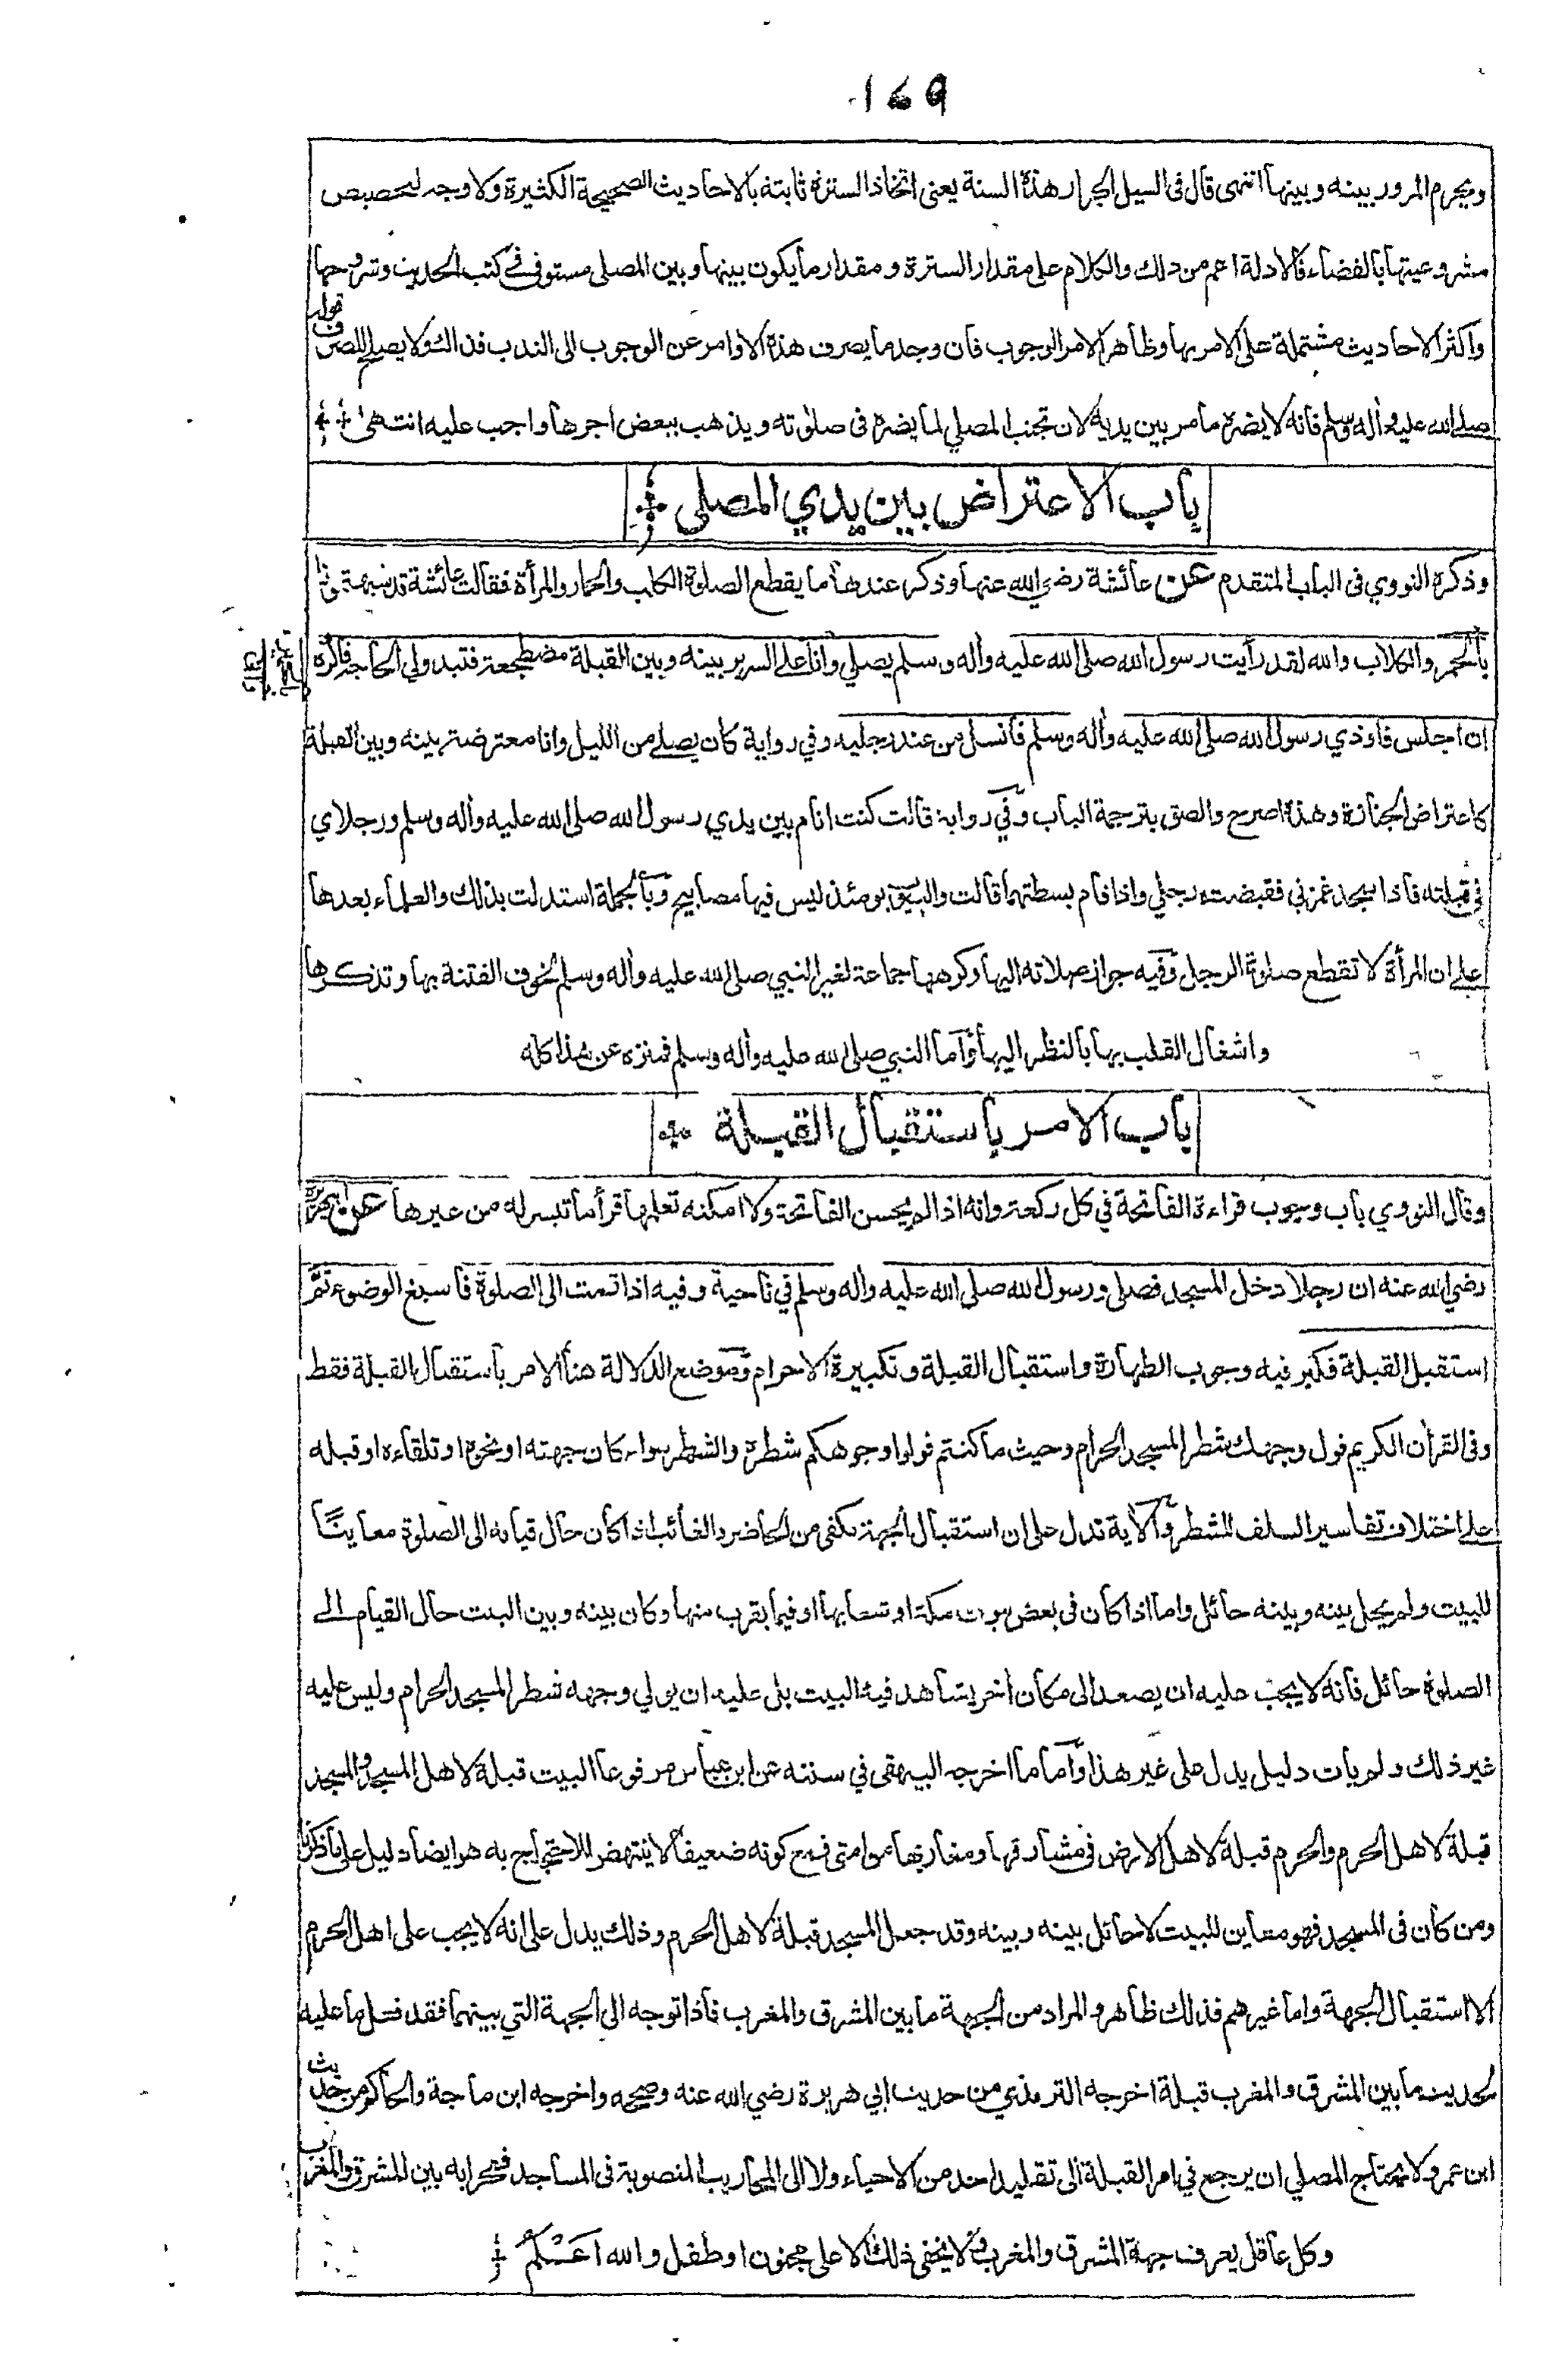 169
ويحرم المرور بينه وبينها انتهى قال فى السيل الجرار هذة السنة يعنى اتخاذ السترة ثابتة بالاحاديث الصحيحة الكثيرة ولا وجه لتخصيص
مشروعيتها بالفضاء فالادلة اعم من ذلك والكلام على مقدار السترة ومقدار ما يكون بينها وبين المصلى مستوفى فى كتب الحديث وشروحها
واكثر الاحاديث مشتملة على الامر بها وظاهر الامر الوجوب فان وجد ما يصرف هذه الاوامر عن الوجوب الى الندب فذالك ولا يصلح للصرف قوله
صلے الله عليه واٰله وسلم فانه لا يضره ما مر بين يديه لان تجنب المصلي لما يضره فى صلوته ويذهب ببعض اجرها واجب عليه انتهى
باب الاعتراض بين يدي المصلى
وذكره النووي فى الباب المتقدم عن عائشة رضي الله عنها وذكر عندها ما يقطع الصلوة الكلب والحمار والمرأة فقالت عائشة قد شبهتمونا
بالحمر والكلاب والله لقد رأيت رسول الله صلى الله عليه واٰله وسلم يصلي وانا على السرير بينه وبين القبلة مضطجعة فتبدو لي الحاجة فاكره
ان اجلس فاوذي رسول الله صلى الله عليه واٰله وسلم فانسل من عند رجليه وفي رواية كان يصلے من الليل وانا معترضة بينه وبين القبلة
كاعتراض الجنازة وهذا اصرح والصق بترجمة الباب وفي رواية قالت كنت انام بين يدي رسول الله صلى الله عليه واٰله وسلم ورجلاي
في قبلته فاذا سجد غمزني فقبضت رجلي واذا قام بسطتهما قالت والبيوت يومئذ ليس فيها مصابيح وبالجملة استدلت بذلك والعلماء بعدها
على ان المرأة لا تقطع صلوة الرجل وفيه جواز صلاته اليها وكرهها جماعة لغير النبي صلى الله عليه واٰله وسلم لخوف الفتنة بها وتذكرها
واشغال القلب بها بالنظر اليها واما النبي صلى الله عليه واٰله وسلم فمنزه عن هذا كله
باب الامر باستقبال القبلة
وقال النووي باب وجوب قراءة الفاتحة في كل ركعة وانه اذا لم يحسن الفاتحة ولا امكنه تعلمها قرأ ما تيسر له من غيرها عن ابي هريرة
رضي الله عنه ان رجلا دخل المسجد فصلى ورسول الله صلى الله عليه واٰله وسلم في ناحية وفيه اذا قمت الى الصلوة فاسبغ الوضوء ثم
استقبل القبلة فكبر فيه وجوب الطهارة واستقبال القبلة وتكبيرة الاحرام وموضع الدلالة هنا الامر باستقبال القبلة فقط
وفى القراٰن الكريم فول وجهك شطر المسجد الحرام وحيث ما كنتم فولوا وجوهكم شطره والشطر سواء كان جهته او نحوه او تلقاءه او قبله
على اختلاف تفاسير السلف للشطر والاٰية تدل على ان استقبال الجهة يكفى من الحاضر والغائب اذا كان حال قيامه الى الصلوة معاينًا
للبيت ولم يحل بينه وبينه حائل واما اذا كان فى بعض بيوت مكة او شعابها او فيما يقرب منها وكان بينه وبين البيت حال القيام الى
الصلوة حائل فانه لا يجب عليه ان يصعد الى مكان اٰخر يشاهد فيه البيت بل عليه ان يولي وجهه شطر المسجد الحرام وليس عليه
غير ذلك ولم يات دليل يدل على غير هذا واما ما اخرجه البيهقى في سننه عن ابن عباس مرفوعا البيت قبلة لاهل المسجد والمسجد
قبلة لاهل الحرم والحرم قبلة لاهل الارض فى مشارقها ومغاربها من امتى فمع كونه ضعيفا لا ينتهض للاحتجاج به هو ايضا دليل على ما ذكرنا
ومن كان فى المسجد فهو معاين للبيت لا حائل بينه وبينه وقد جعل المسجد قبلة لاهل الحرم وذلك يدل على انه لا يجب على اهل الحرم
الا استقبال الجهة واما غيرهم فذلك ظاهر والمراد من الجهة ما بين المشرق والمغرب فاذا توجه الى الجهة التي بينهما فقد فعل ما عليه
لحديث ما بين المشرق والمغرب قبلة اخرجه الترمذي من حديث ابي هريرة رضي الله عنه وصححه واخرجه ابن ماجة والحاكم من حديث
ابن عمر ولا يحتاج المصلي ان يرجع في امر القبلة الى تقليد احد من الاحياء ولا الى المحاريب المنصوبة فى المساجد فمحرابه بين المشرق والمغرب
وكل عاقل يعرف جهة المشرق والمغرب ولا يخفى ذلك الا على مجنون او طفل والله اعلم